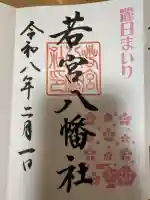 朔日まいり
若宮八幡社
令和八年二月一日